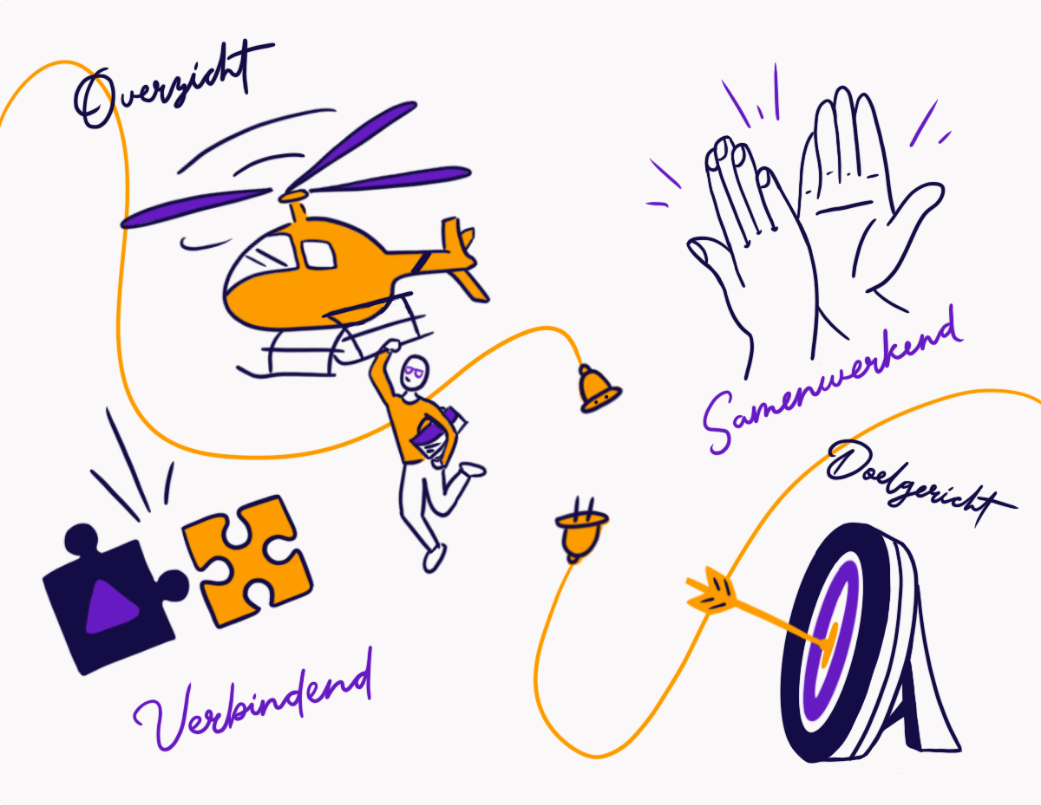 Overzicht
Samenwerkend
Doelgericht
Verbindend